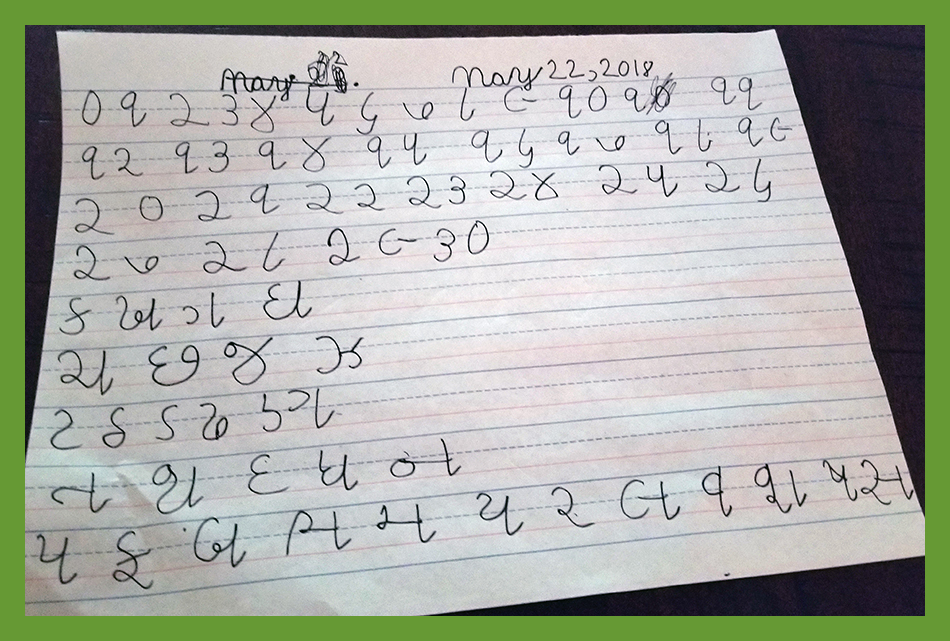 May 22, 2018
૦ ૧ ૨ ૩ ૪ ૫ ૬ ૭ ૮ ૯ ૧૦ ૧૧
૧૨ ૧૩ ૧૪ ૧૫ ૧૬ ૧૭ ૧૮ ૧૯
૨૦ ૨૧ ૨૨ ૨૩ ૨૪ ૨૫ ૨૬
૨૭ ૨૮ ૨૯ ૩૦
ક ખ ગ ઘ
ચ છ જ ઝ
ટ ઠ ડ ઢ ણ
ત થ દ ધ ન
પ ફ બ ભ મ ય ર લ વ શ ષ સ